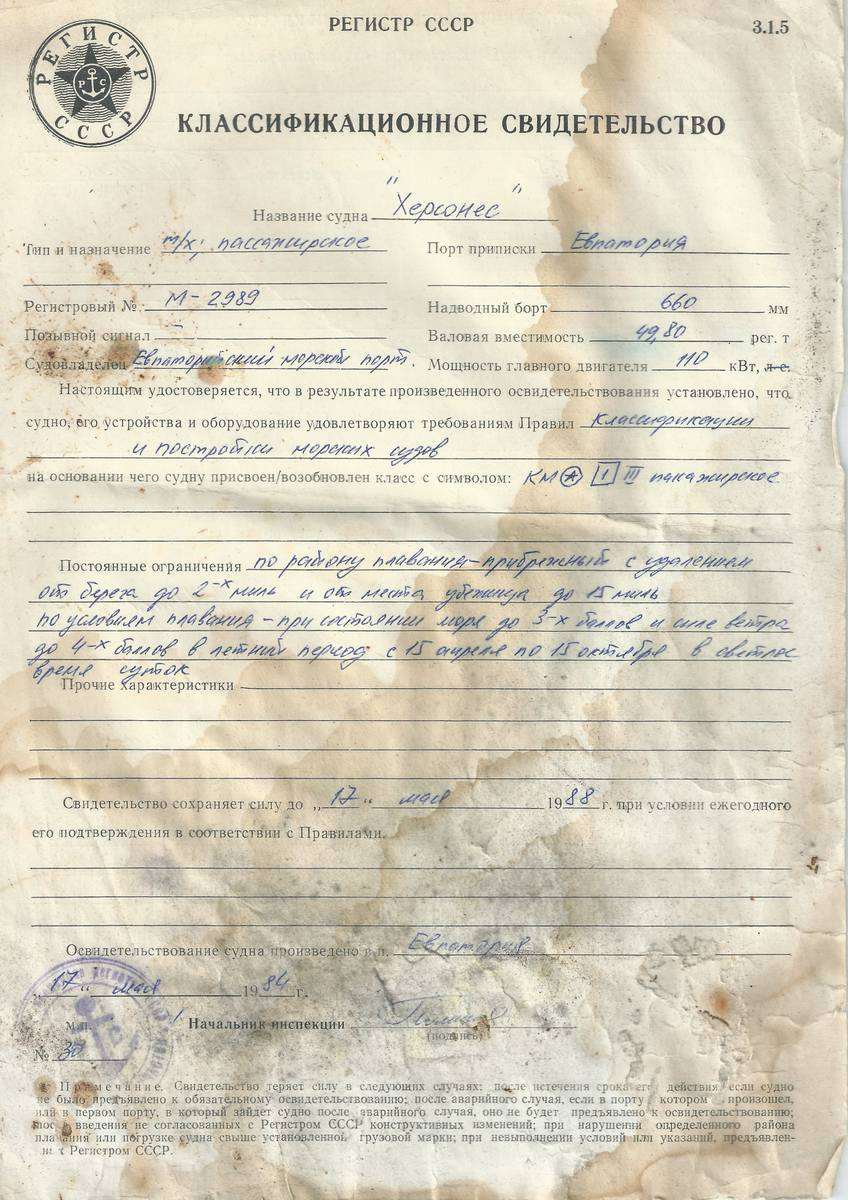 РЕГИСТР СССР
3.1.5
РЕГИСТР
РС
СССР
КЛАССИФИКАЦИОННОЕ СВИДЕТЕЛЬСТВО
Название судна "Херсонес"
Тип и назначение т/х; пассажирское
Порт приписки Евпатория
Регистровый № М-2989
Надводный борт 660 мм
Позывной сигнал –
Валовая вместимость 49,80 рег. т
Судовладелец Евпаторийский морской порт.
Мощность главного двигателя 110 кВт, л.с.
Настоящим удостоверяется, что в результате произведенного освидетельствования установлено, что
судно, его устройства и оборудование удовлетворяют требованиям Правил классификации
и постройки морских судов
на основании чего судну присвоен/возобновлен класс с символом: КМ ★ 1 III пассажирское
Постоянные ограничения по району плавания – прибрежный с удалением
от берега до 2-х миль и от места убежища до 15 миль
по условиям плавания – при состоянии моря до 3-х баллов и силе ветра
до 4-х баллов в летний период с 15 апреля по 15 октября в светлое
время суток
Прочие характеристики
Свидетельство сохраняет силу до „17“ мая 1988 г. при условии ежегодного
его подтверждения в соответствии с Правилами.
Освидетельствование судна произведено в п. Евпатория
„17“ мая 1984 г.
М.П.
Начальник инспекции
(подпись)
№ 30
Примечание. Свидетельство теряет силу в следующих случаях: после истечения срока его действия если судно
не было предъявлено к обязательному освидетельствованию; после аварийного случая, если в порту котором произошел,
или в первом порту, в который зайдет судно после аварийного случая, оно не будет предъявлено к освидетельствованию;
введения не согласованных с Регистром СССР конструктивных изменений; при нарушении определенного района
плавания или погрузке судна свыше установленной грузовой марки; при невыполнении условий или указаний, предъявлен-
ных Регистром СССР.